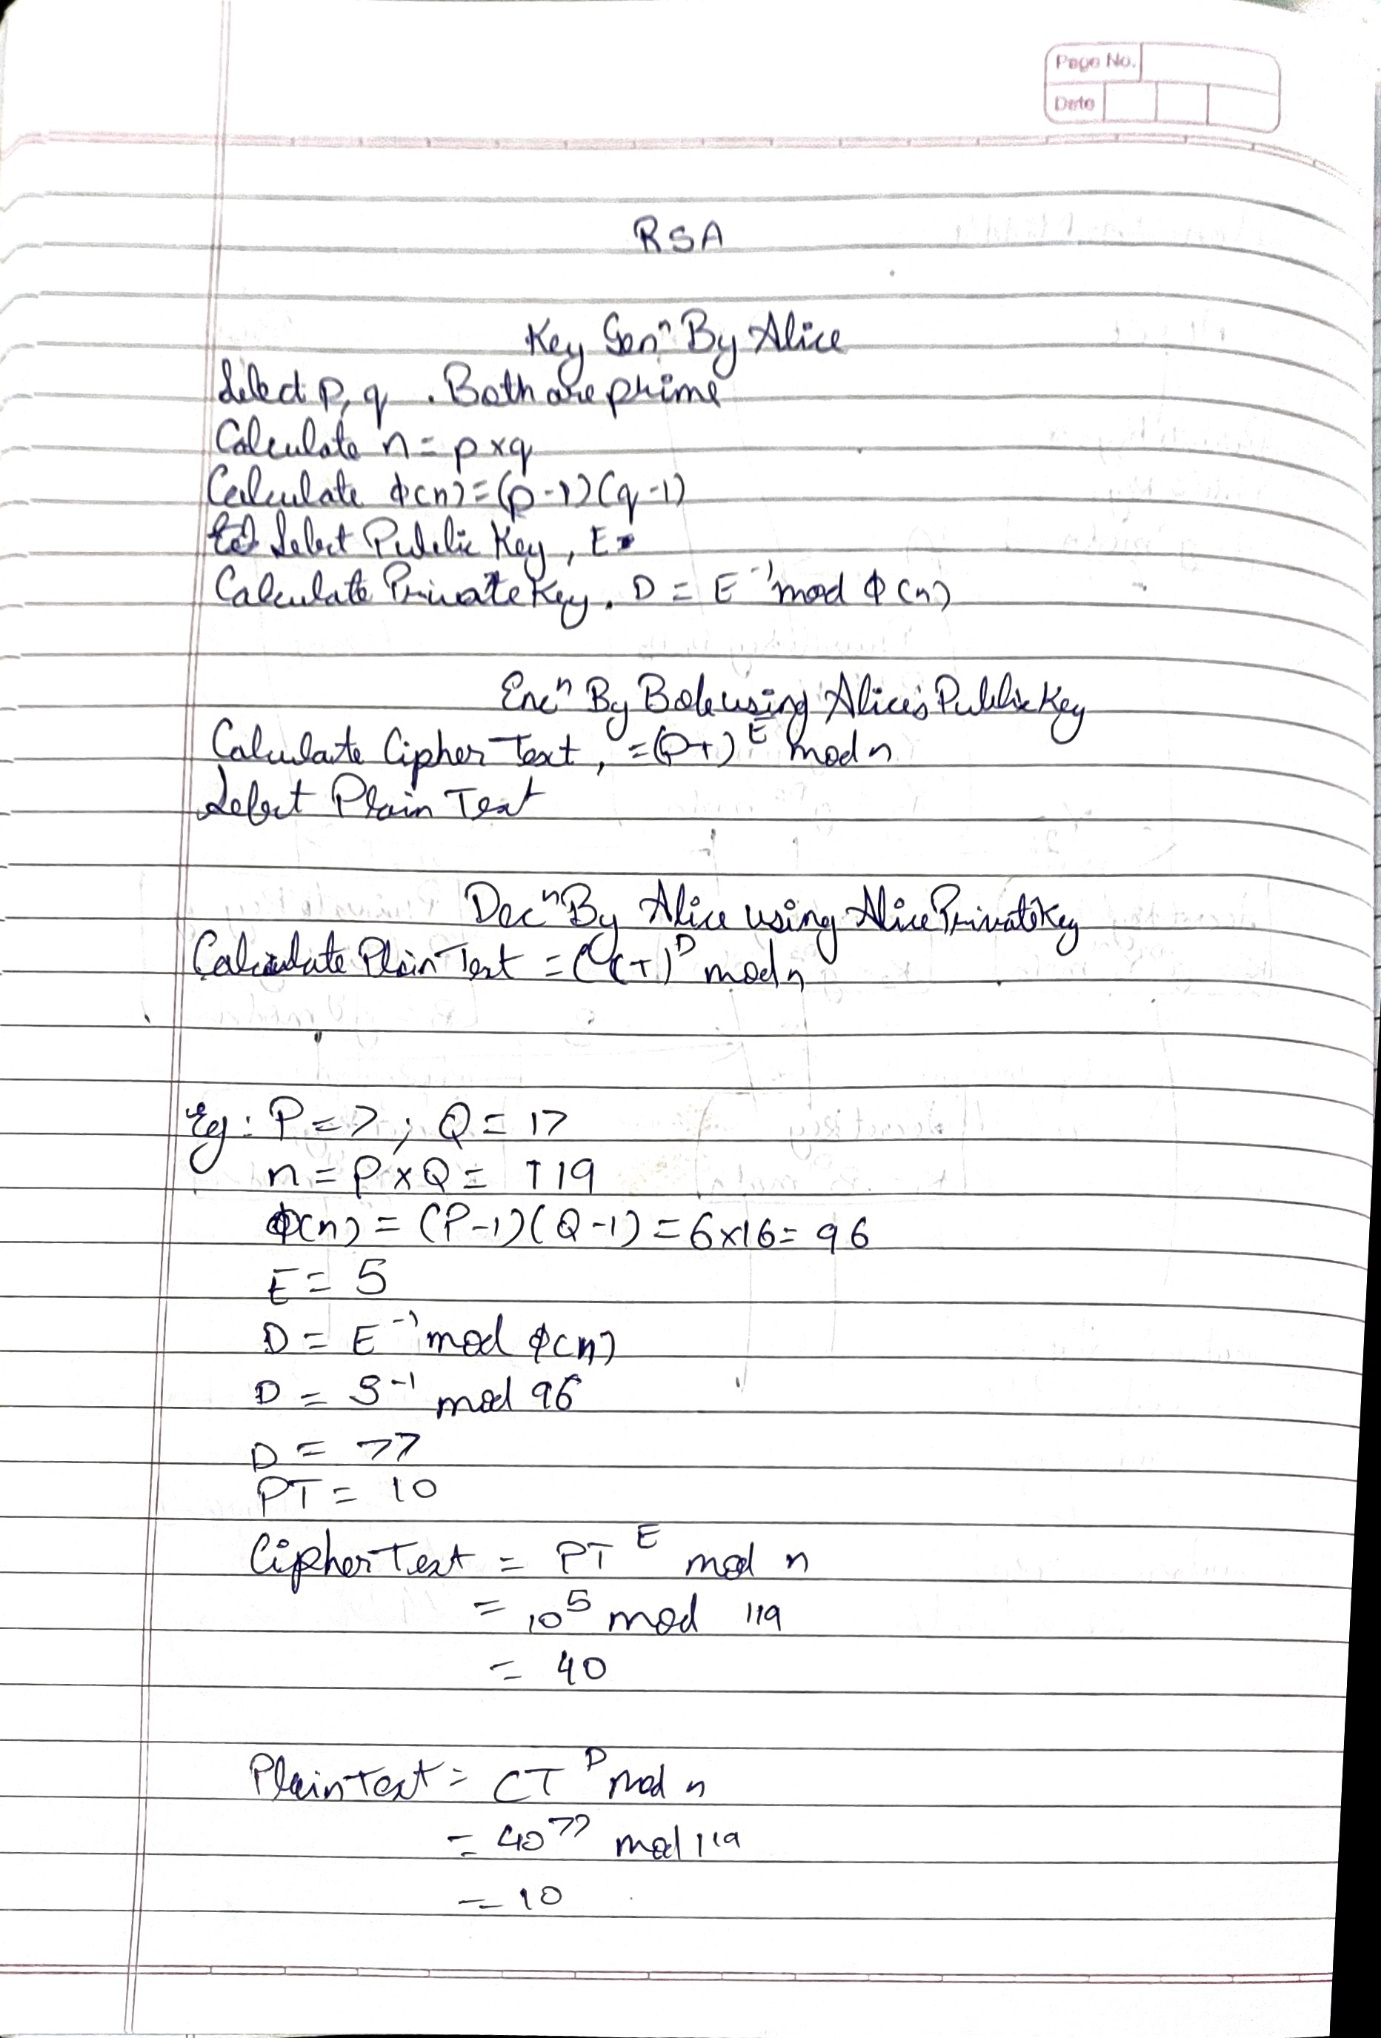 Page No.
Date
RSA
Key Genⁿ By Alice
Select p, q . Both are prime
Calculate n = p x q
Calculate ϕ(n) = (p-1)(q-1)
Select Public Key, E
Calculate Private Key, D = E⁻¹ mod ϕ(n)
Encⁿ By Bob using Alice's Public Key
Calculate Cipher Text, = (PT)ᴱ mod n
Select Plain Text
Decⁿ By Alice using Alice Private Key
Calculate Plain Text = (CT)ᴰ mod n
Eg: P = 7; Q = 17
n = P x Q = 119
ϕ(n) = (P-1)(Q-1) = 6x16 = 96
E = 5
D = E⁻¹ mod ϕ(n)
D = 5⁻¹ mod 96
D = 77
PT = 10
Cipher Text = PT ᴱ mod n
= 10⁵ mod 119
= 40
Plain Text = CT ᴰ mod n
= 40⁷⁷ mod 119
= 10